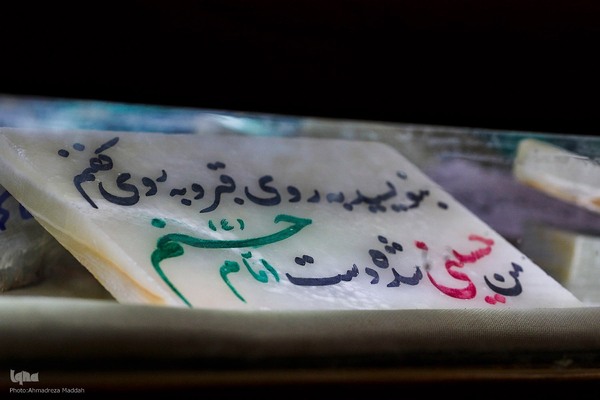 بنویسید به روی قبر و به روی کفنم
من حسینی شده دست امام حسنم (ع)
iqna
Photo:Ahmadreza Maddah